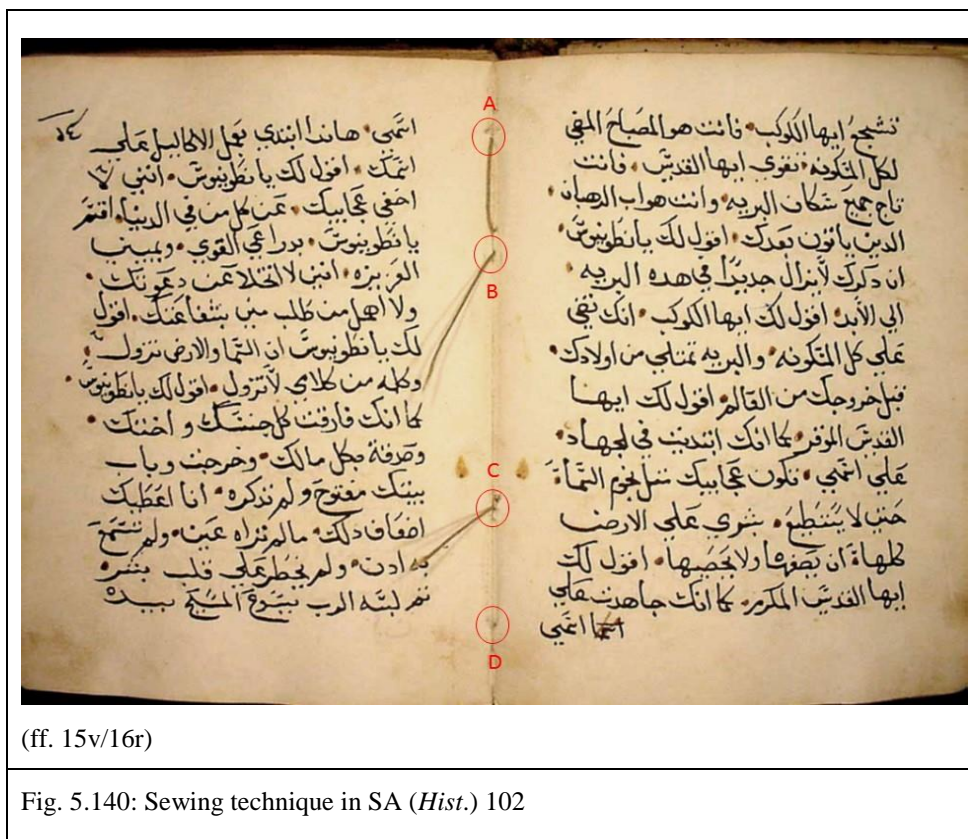 تشجع ايها الكوكب فانت هو المصباح المضي
لكل المسكونه تقوي ايها القديس فانت
تاج جميع سكان البريه وانت هو اب الرهبان
الدين ياتون بعدك اقول لك يا نطونيوس
ان دكرك لا يزال جديدًا في هده البريه
الي الابد اقول لك ايها الكوكب انك تضي
علي كل المسكونه والبريه تمتلي من اولادك
قبل خروجك من العالم اقول لك ايها
القديس الموقر كما انك ابتديت في الجهاد
علي اسمي تكون عجايبك مثل نجوم السما
حتي لا يستطيع بشري علي الارض
كلها ان يصفها ولا يحصيها اقول لك
ايها القديس المكرم كما انك جاهدت علي
اسمي
اسمي هاندا ابتدي بعمل الاكاليل علي
اسمك اقول لك يا نطونيوس انني لا
اخفي عجايبك عن كل من في الدنيا اقسم
يا نطونيوس بدراعي القوي وبميني
العزيزه انني لا اتخلا عن دعوتك
ولا اهمل من طلب مني بشفاعتك اقول
لك يا نطونيوس ان السما والارض تزول
وكلمه من كلامي لا تزول اقول لك يا نطونيوس
كما انك فارقت كل جنسك و اختك
وصدقة بكل مالك وخرجت وباب
بيتك مفتوح ولم تذكره انا اعطيك
اضعاف دلك مالم تراه عين ولم تسمع
به ادن ولم يخطر علي قلب بشر
نعم الرب يسوع المسيح بيده
A
B
C
D
(ff. 15v/16r)
Fig. 5.140: Sewing technique in SA (Hist.) 102